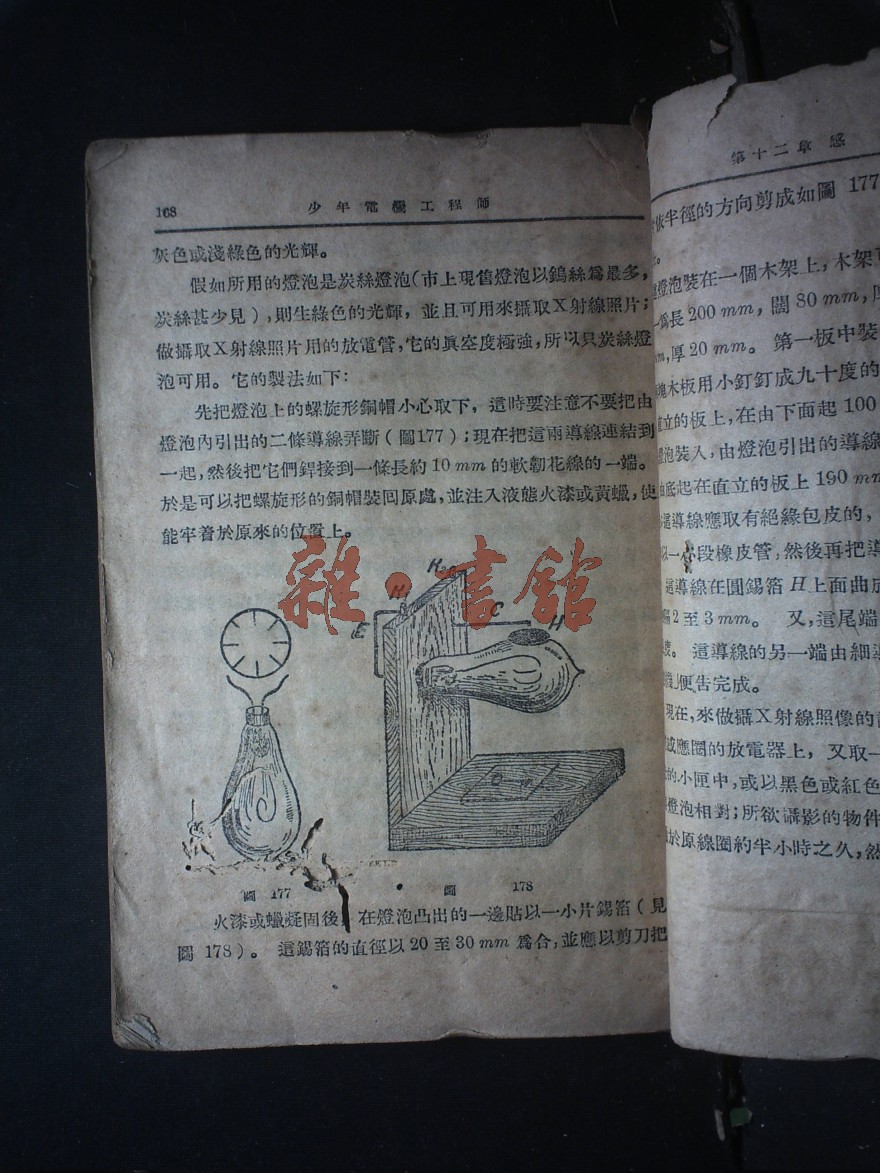 168
少年電機工程師
灰色或淺綠色的光輝。
假如所用的燈泡是炭絲燈泡（市上現售燈泡以鎢絲爲最多，
炭絲甚少見），則生綠色的光輝，並且可用來攝取X射線照片；
做攝取X射線照片用的放電管，它的眞空度極強，所以只炭絲燈
泡可用。它的製法如下：
先把燈泡上的螺旋形銅帽小心取下，這時要注意不要把由
燈泡內引出的二條導線弄斷（圖177）；現在把這兩導線連結到
一起，然後把它們銲接到一條長約10 mm的軟韌花線的一端。
於是可以把螺旋形的銅帽裝回原處，並注入液態火漆或黃蠟，使
能牢着於原來的位置上。
雜·書館
E
C
H
圖 177
圖 178
火漆或蠟凝固後，在燈泡凸出的一邊貼以一小片錫箔（見
圖 178）。 這錫箔的直徑以20至30 mm 爲合，並應以剪刀把
第十二章 感
依半徑的方向剪成如圖 177
燈泡裝在一個木架上，木架
長200 mm，闊 80 mm，
厚20 mm。 第一板中裝
木板用小釘釘成九十度的
立的板上，在由下面起100
泡裝入，由燈泡引出的導線
底起在直立的板上190 mm
導線應取有絕緣包皮的，
以一小段橡皮管，然後再把導
這導線在圓錫箔H上面曲成
2至3 mm。 又，這尾端
這導線的另一端由細
便告完成。
現在，來做攝X射線照像的
應圈的放電器上，又取一
的小匣中，或以黑色或紅色
燈泡相對；所欲攝影的物件
於原線圈約半小時之久，然